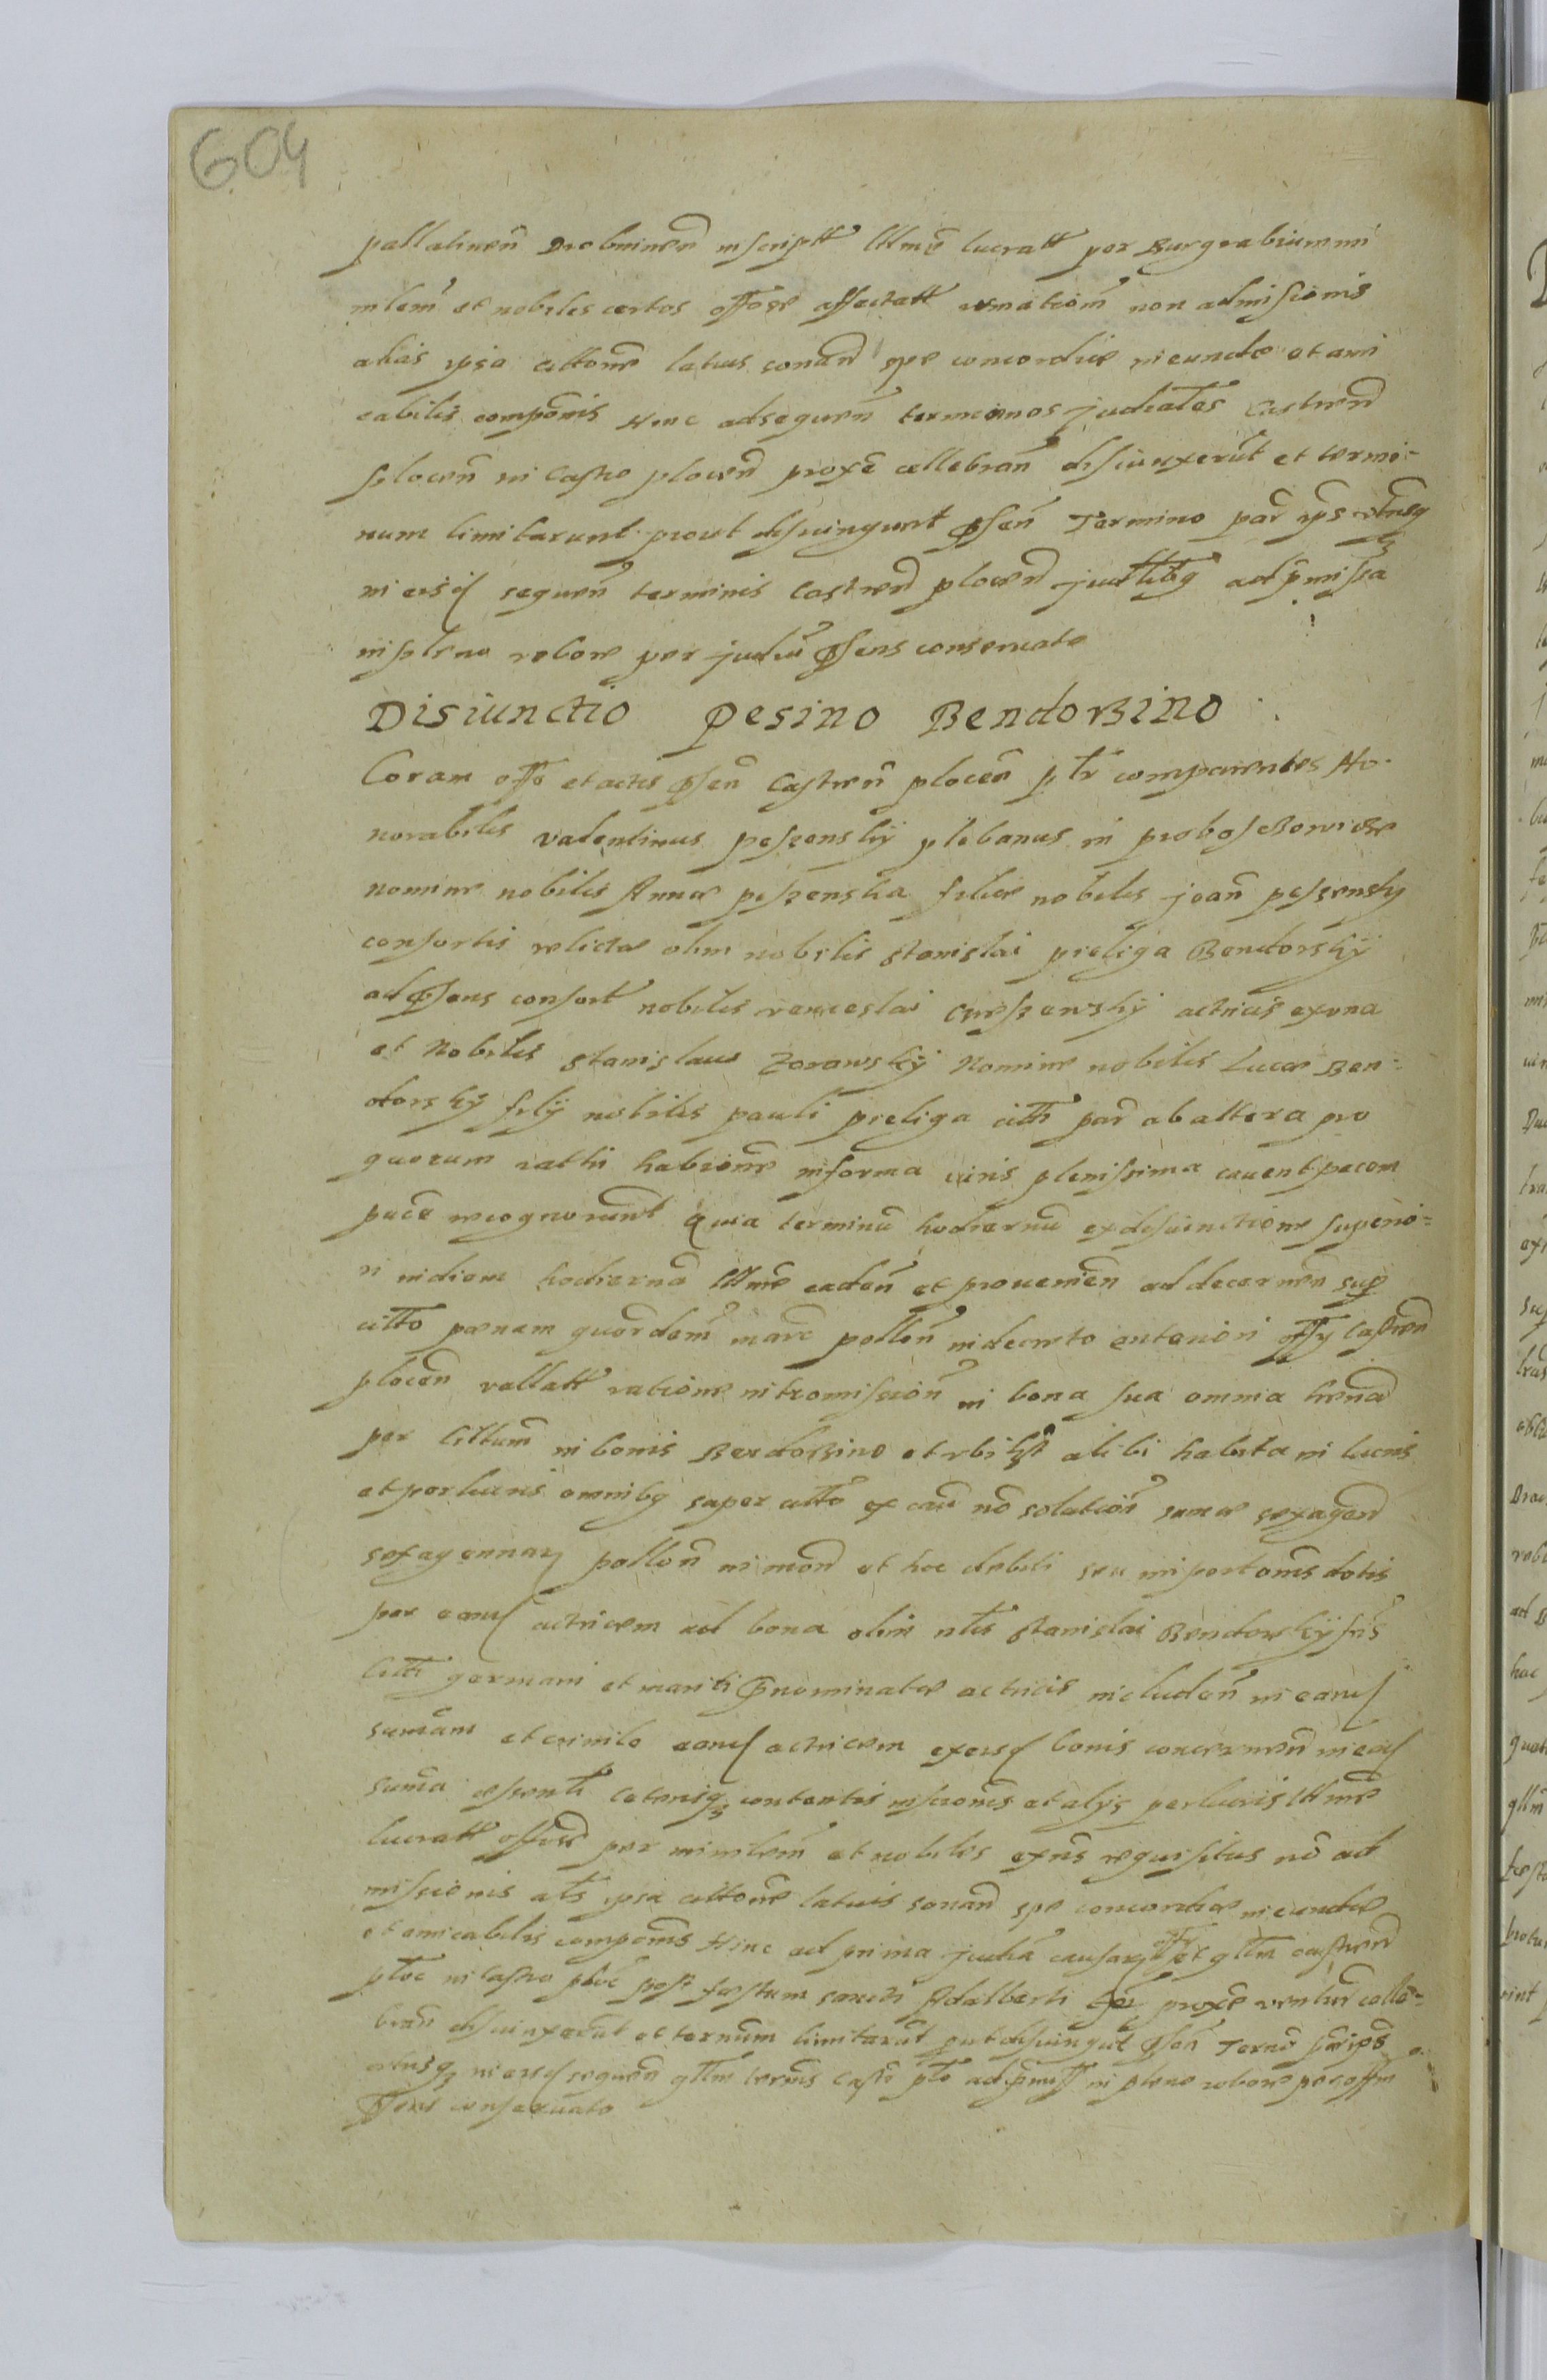 604
pallatinen̄ Drobninen̄ inscriptt ltime lucratt per Burgrabium mi
nlem et nobiles certos offose affectatt non admissionis
alias ipsa cittone latius sonan̄ spe concordiæ ineundæ et ami
cabilis componis Hinc ad sequen̄ terminos judiales Castren̄
plocen̄ in Castro plocen̄ proxe cellebran̄ disiunxerūt et termi=
num limitarunt prout disiungunt p̄sen̄ Termino par̄ ips
in eisd sequen̄ terminis Castren̄ plocen̄ ad p̄missa
in pleno robore per judiū p̄sens conseruato
Disiunctio Pesino Bendorsino
Coram offo et actis p̄sen̄ Castren̄ plocen̄ p ltr comparentes Ho-
norabilis valentinus peszenskij plebanus in proboszewicze
nomine nobilis Annæ peszenska filiæ nobilis joan̄ peszensky
consortis relictæ olim nobilis stanislai preliga Bendorskij
ad p̄sens consort nobilis venceslai actricis ex una
et Nobilis stanislaus Zorawskij Nomine nobilis Lucæ Ben=
dorskij filij nobilis pauli preliga citti par̄ ab altera pro
quorum rathi habitione in forma iuris plenissima cauent pacem
pace recognorunt Quia terminū hodiernū ex disiunctione superio=
ri in diem hodiernā ltime caden̄ et prouenien̄ ad decernen̄ sup
citto pænam quordam marc pollen̄ in decreto anteriori offij Castren̄
plocen̄ vallatt ratione intromission̄ in bona sua omnia
per Cittum in bonis Bendorsino et vbi alibi habita in lucris
et perlucris omnibq super citto ex cau nō solution̄ sumæ sexagen̄
sexagennarz pollon̄ in mon̄ et hoc debiti seu importonis dotis
per eand actricem ad bona olim nlis stanislai Bendorskij fris
Citti germani et mariti p̄nominatæ actricis includen̄ in eand
sumam et eand actricem ex eisd bonis concernen̄ in ead
suma cæterisq contentis inscronis et alijs perlucris ltime
lucratt offose per minrlem et nobiles exnis requisitus nō ad
missionis als ipsa cittone latius sonan̄ spe concordiæ ineundæ
et amicabilis componis Hinc ad prima judia causarz offi et qllm castren̄
ploc in Castro ploc post festum sancti Adalberti proxe ventur̄ celle=
bran̄ disiunxerūt et ternūm limitarūt put disiungūt p̄sen̄ Terno
in eisd sequen̄ qllm termis Castr̄ plo ad p̄miss in pleno robore per offm
p̄sens conseruato